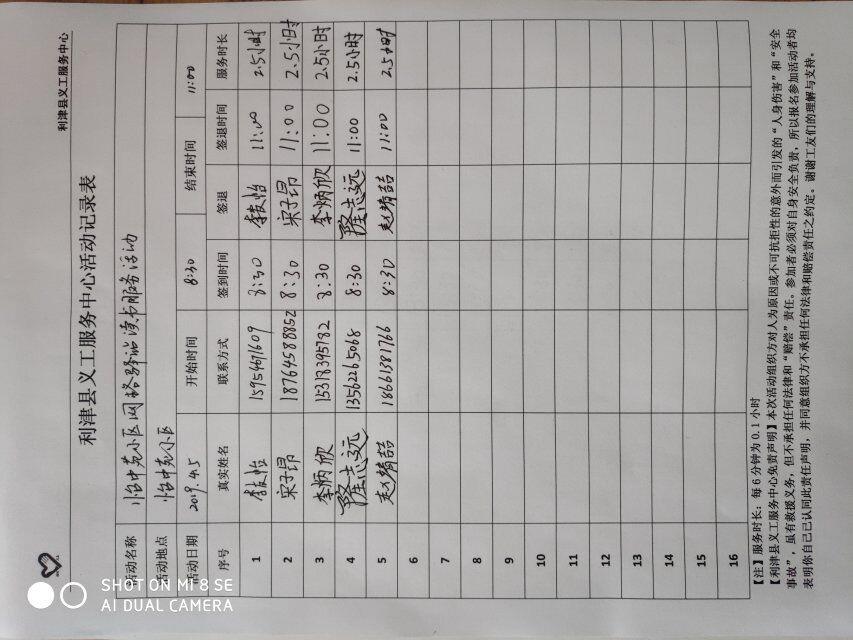 利津县义工服务中心
利津县义工服务中心活动记录表
活动名称 怡中苑小区网格驿站读书服务活动
活动地点 怡中苑小区
活动日期 2019.4.5 开始时间 8:30 结束时间 11:00
序号 真实姓名 联系方式 签到时间 签退 签退时间 服务时长
1 15954671609 8:30 11:00 2.5小时
2 宋子昂 18764588852 8:30 宋子昂 11:00 2.5小时
3 李炳欣 15318395782 8:30 李炳欣 11:00 2.5小时
4 隆志远 13562265068 8:30 隆志远 11:00 2.5小时
5 赵靖喆 18661381766 8:30 赵靖喆 11:00 2.5小时
6
7
8
9
10
11
12
13
14
15
16
【注】服务时长：每6分钟为0.1小时
【利津县义工服务中心免责声明】本次活动组织方对人为原因或不可抗拒性的意外而引发的“人身伤害”和“安全
事故”，虽有救援义务，但不承担任何法律和“赔偿”责任。参加者必须对自身安全负责，所以报名参加活动者均
表明你自己已认同此责任声明，并同意组织方不承担任何法律和赔偿责任之约定。谢谢工友们的理解与支持。
SHOT ON MI 8 SE
AI DUAL CAMERA